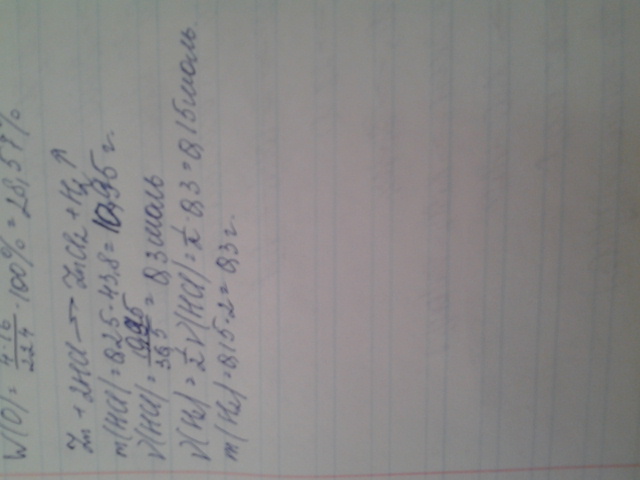 W(O) = 4·16/224 · 100% = 28,57%
Zn + 2HCl → ZnCl2 + H2 ↑
m(HCl) = 0,25·43,8 = 10,95 г.
ν(HCl) = 10,95/36,5 = 0,3 моль
ν(H2) = 1/2 ν(HCl) = 1/2 · 0,3 = 0,15 моль.
m(H2) = 0,15·2 = 0,3 г.